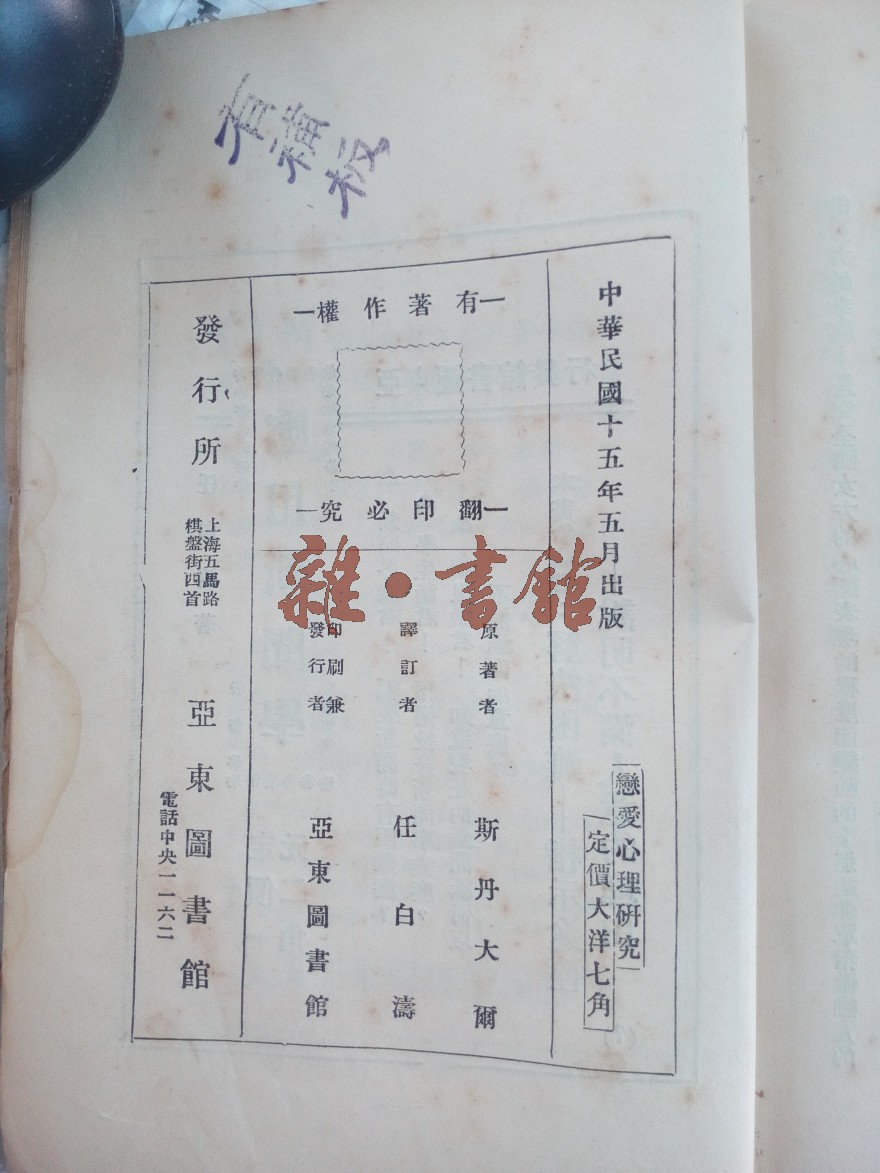 有著作權
翻印必究
中華民國十五年五月出版
戀愛心理研究
定價大洋七角
原著者 斯丹大爾
譯訂者 任白濤
印刷兼發行者 亞東圖書館
發行所
上海五馬路
棋盤街西首
亞東圖書館
電話中央一一六二
雜·書館